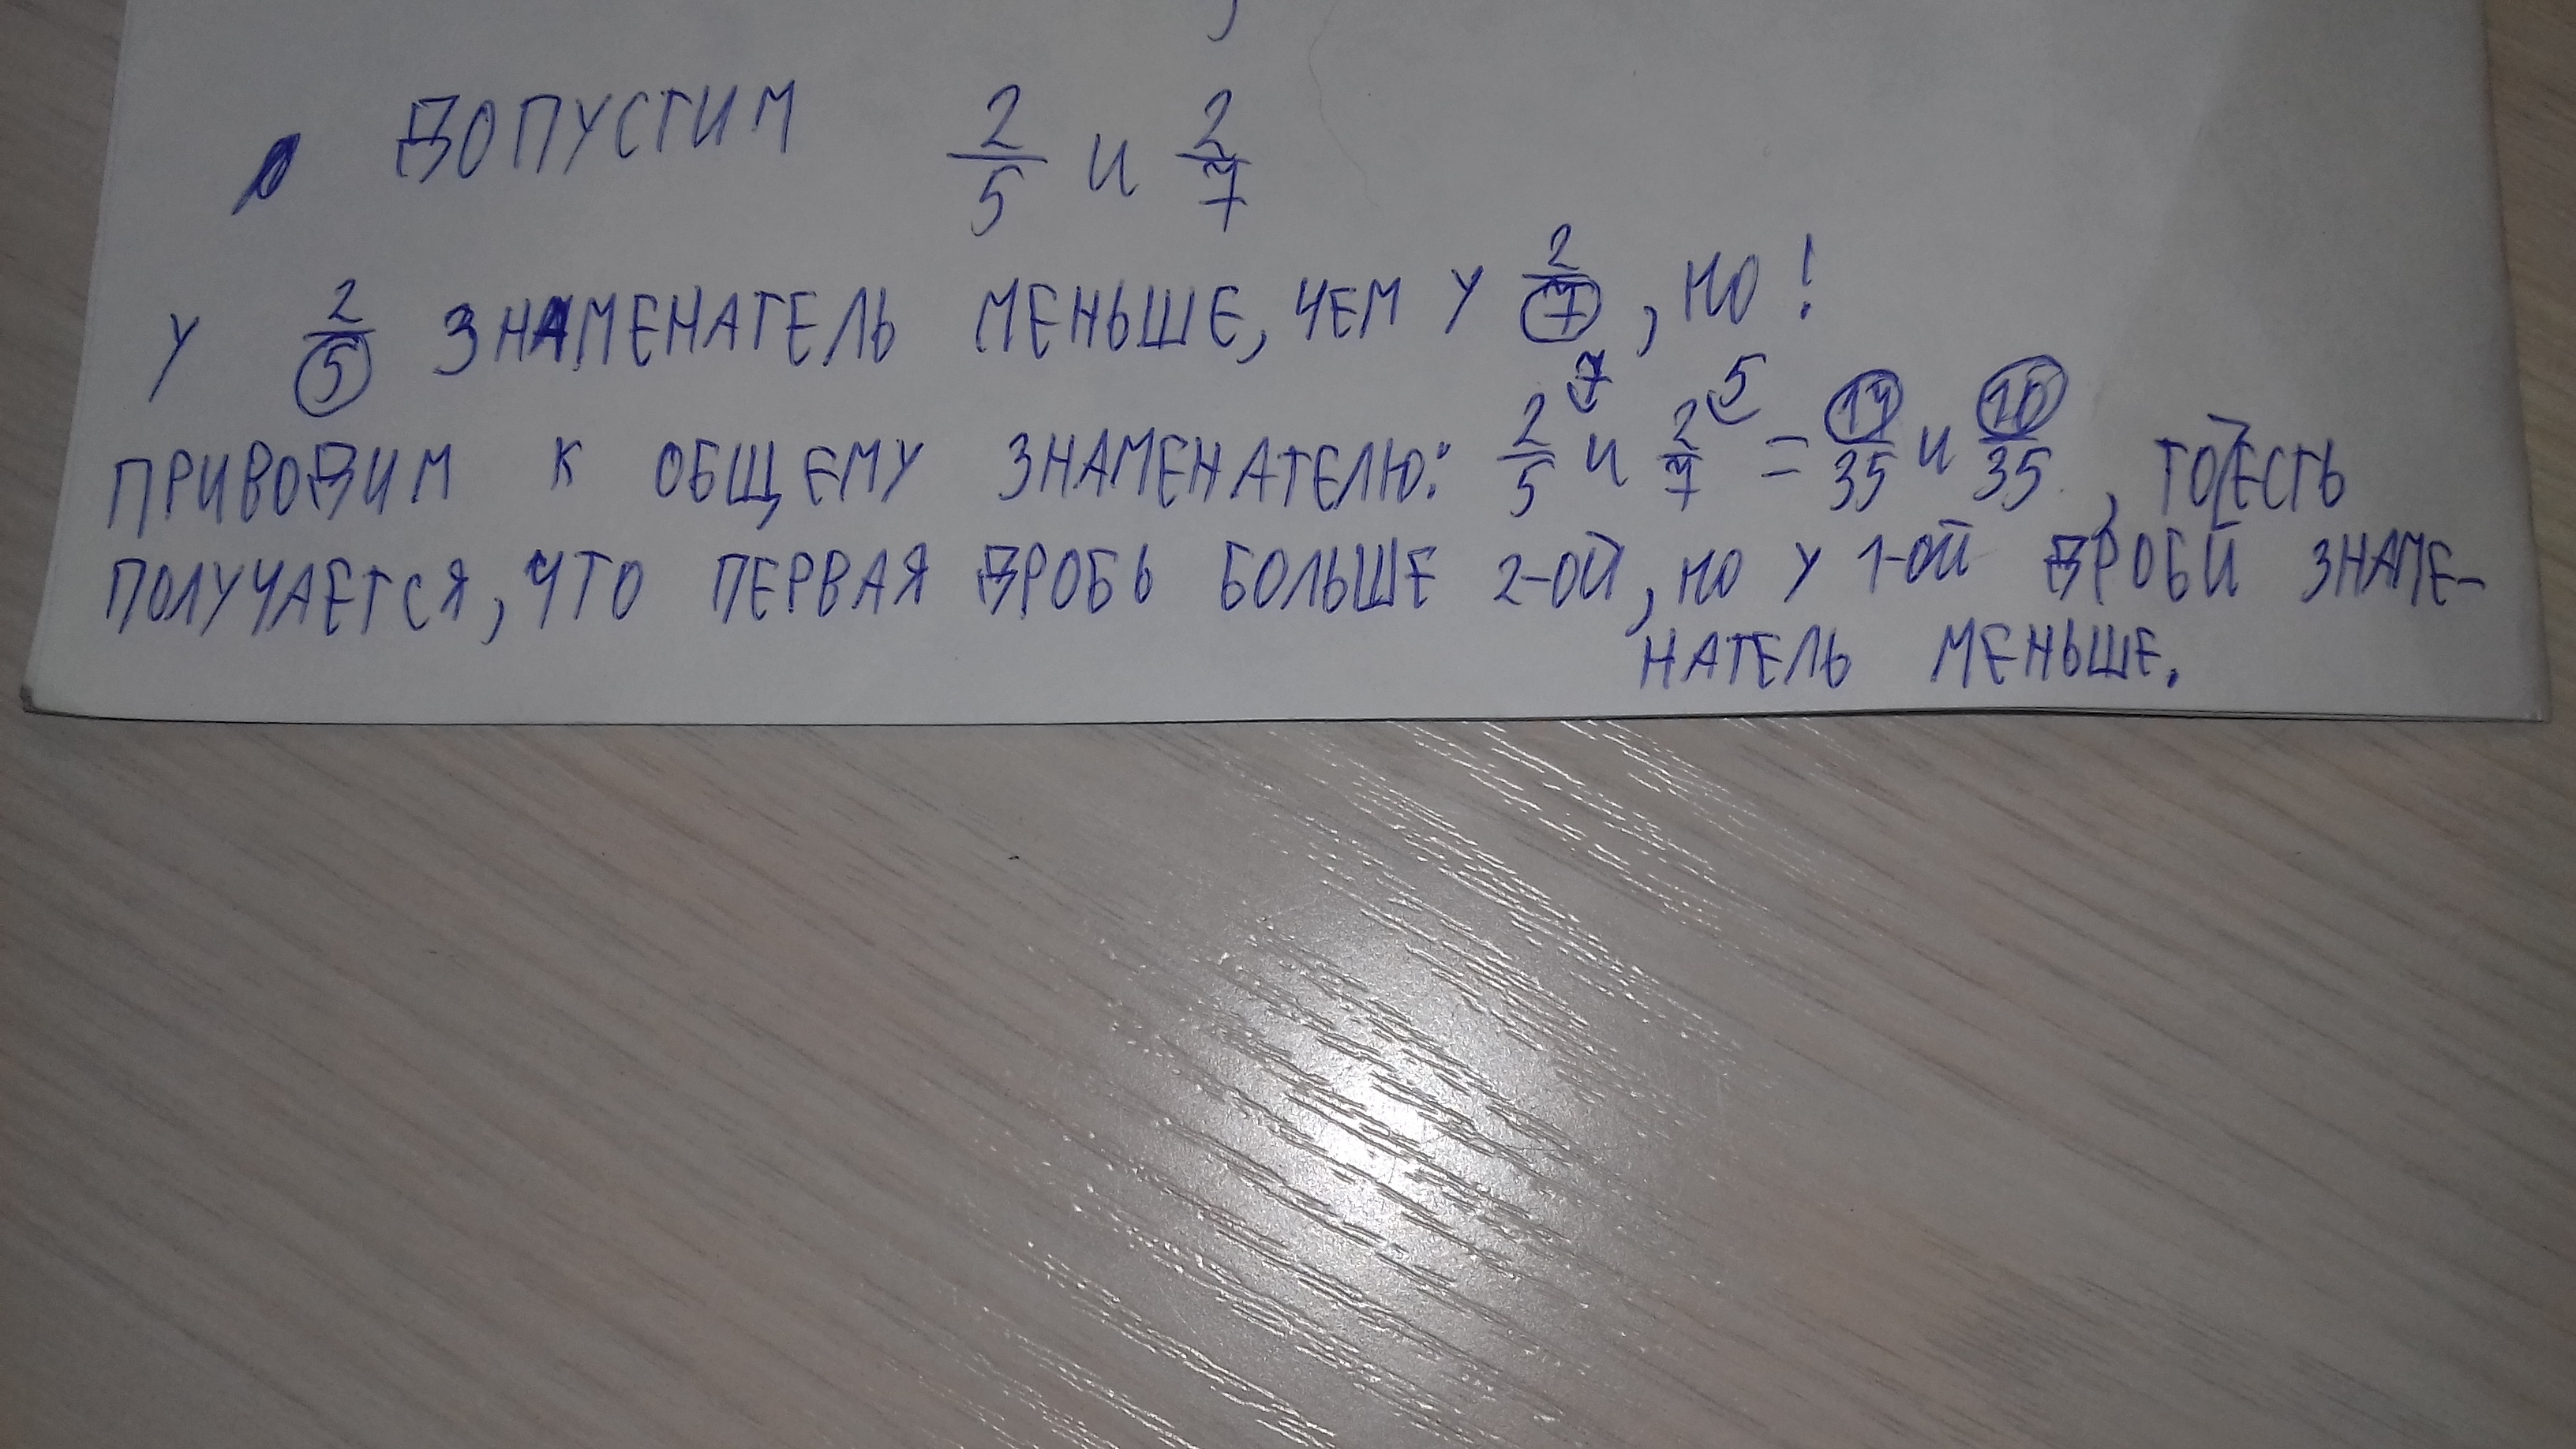 ДОПУСТИМ 2/5 и 2/7
У 2/5 ЗНАМЕНАТЕЛЬ МЕНЬШЕ, ЧЕМ У 2/7, НО!
ПРИВОДИМ К ОБЩЕМУ ЗНАМЕНАТЕЛЮ: 2/5 7 и 2/7 5 = 14/35 и 10/35, ТО ЕСТЬ
ПОЛУЧАЕТСЯ, ЧТО ПЕРВАЯ ДРОБЬ БОЛЬШЕ 2-ОЙ, НО У 1-ОЙ ДРОБИ ЗНАМЕ-
НАТЕЛЬ МЕНЬШЕ.